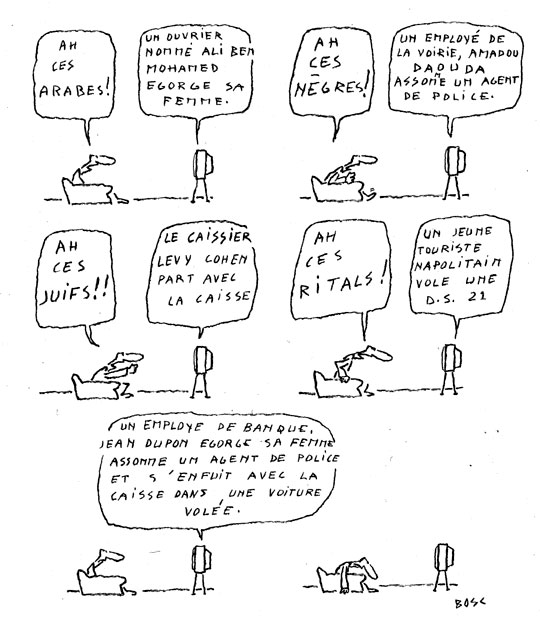 AH
CES
ARABES!
UN OUVRIER
NOMMÉ ALI BEN
MOHAMED
EGORGE SA
FEMME.
AH
CES
NÈGRES!
UN EMPLOYÉ DE
LA VOIRIE, AMADOU
DAOUDA
ASSOMME UN AGENT
DE POLICE.
AH
CES
JUIFS!!
LE CAISSIER
LEVY COHEN
PART AVEC
LA CAISSE
AH
CES
RITALS!
UN JEUNE
TOURISTE
NAPOLITAIN
VOLE UNE
D.S. 21
UN EMPLOYE DE BANQUE,
JEAN DUPON EGORGE SA FEMME
ASSOMME UN AGENT DE POLICE
ET S'ENFUIT AVEC LA
CAISSE DANS UNE VOITURE
VOLÉE.
BOSC